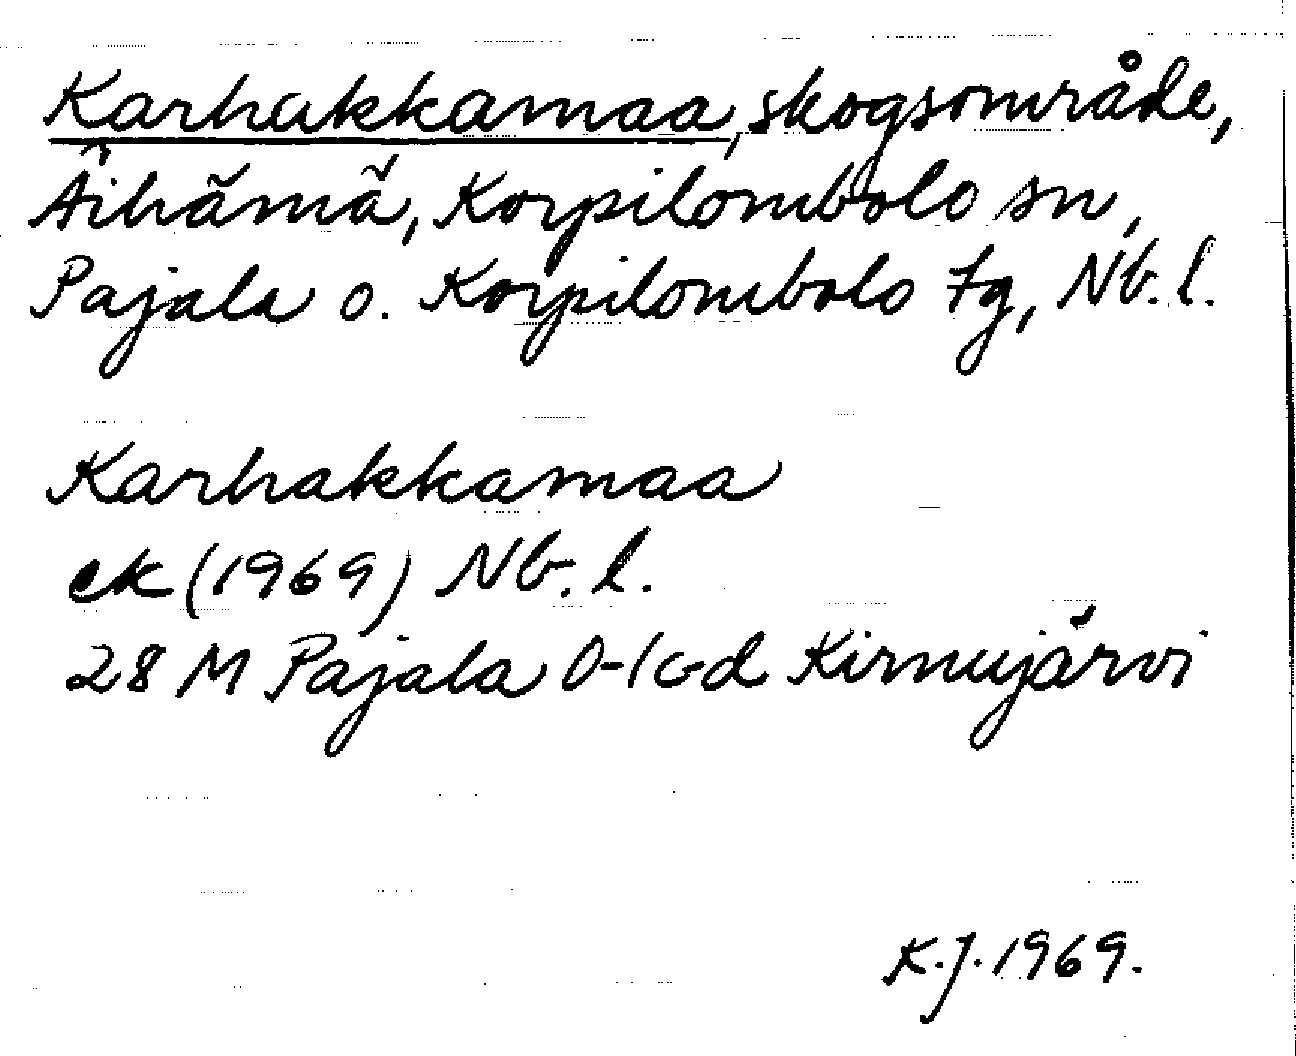 Karhakkamaa, skogsområde,
Äihämä, Korpilombolo sn,
Pajala o. Korpilombolo tg, Nb. l.
Karhakkamaa
ek (1969) Nb. l.
28 M Pajala 0-1 c-d Kirnujärvi
K.J. 1969.